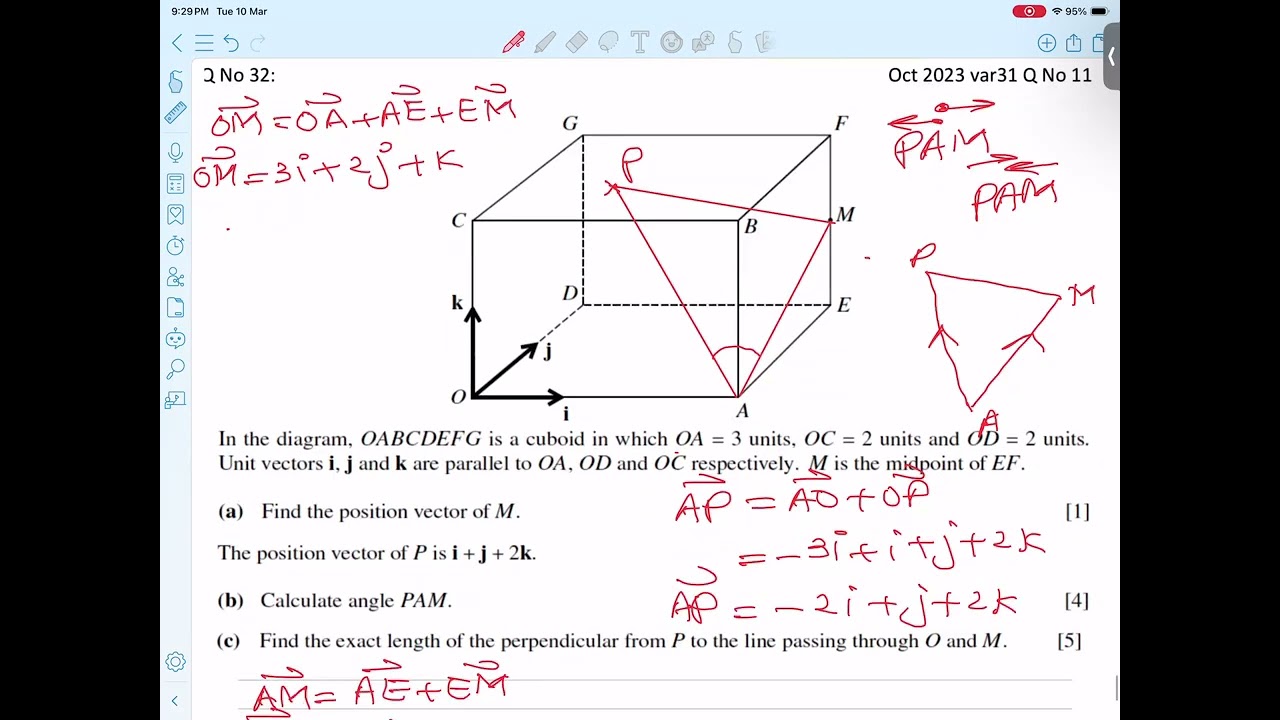 9:29 PM Tue 10 Mar
95%
Q No 32:
Oct 2023 var31 Q No 11
OM = OA + AE + EM
OM = 3i + 2j + k
G
F
P
C
B
M
k
D
E
j
O
i
A
PAM
PAM
P
M
A
In the diagram, OABCDEFG is a cuboid in which OA = 3 units, OC = 2 units and OD = 2 units.
Unit vectors i, j and k are parallel to OA, OD and OC respectively. M is the midpoint of EF.
AP = AO + OP
(a) Find the position vector of M. [1]
= -3i + i + j + 2k
The position vector of P is i + j + 2k.
AP = -2i + j + 2k
(b) Calculate angle PAM. [4]
(c) Find the exact length of the perpendicular from P to the line passing through O and M. [5]
AM = AE + EM